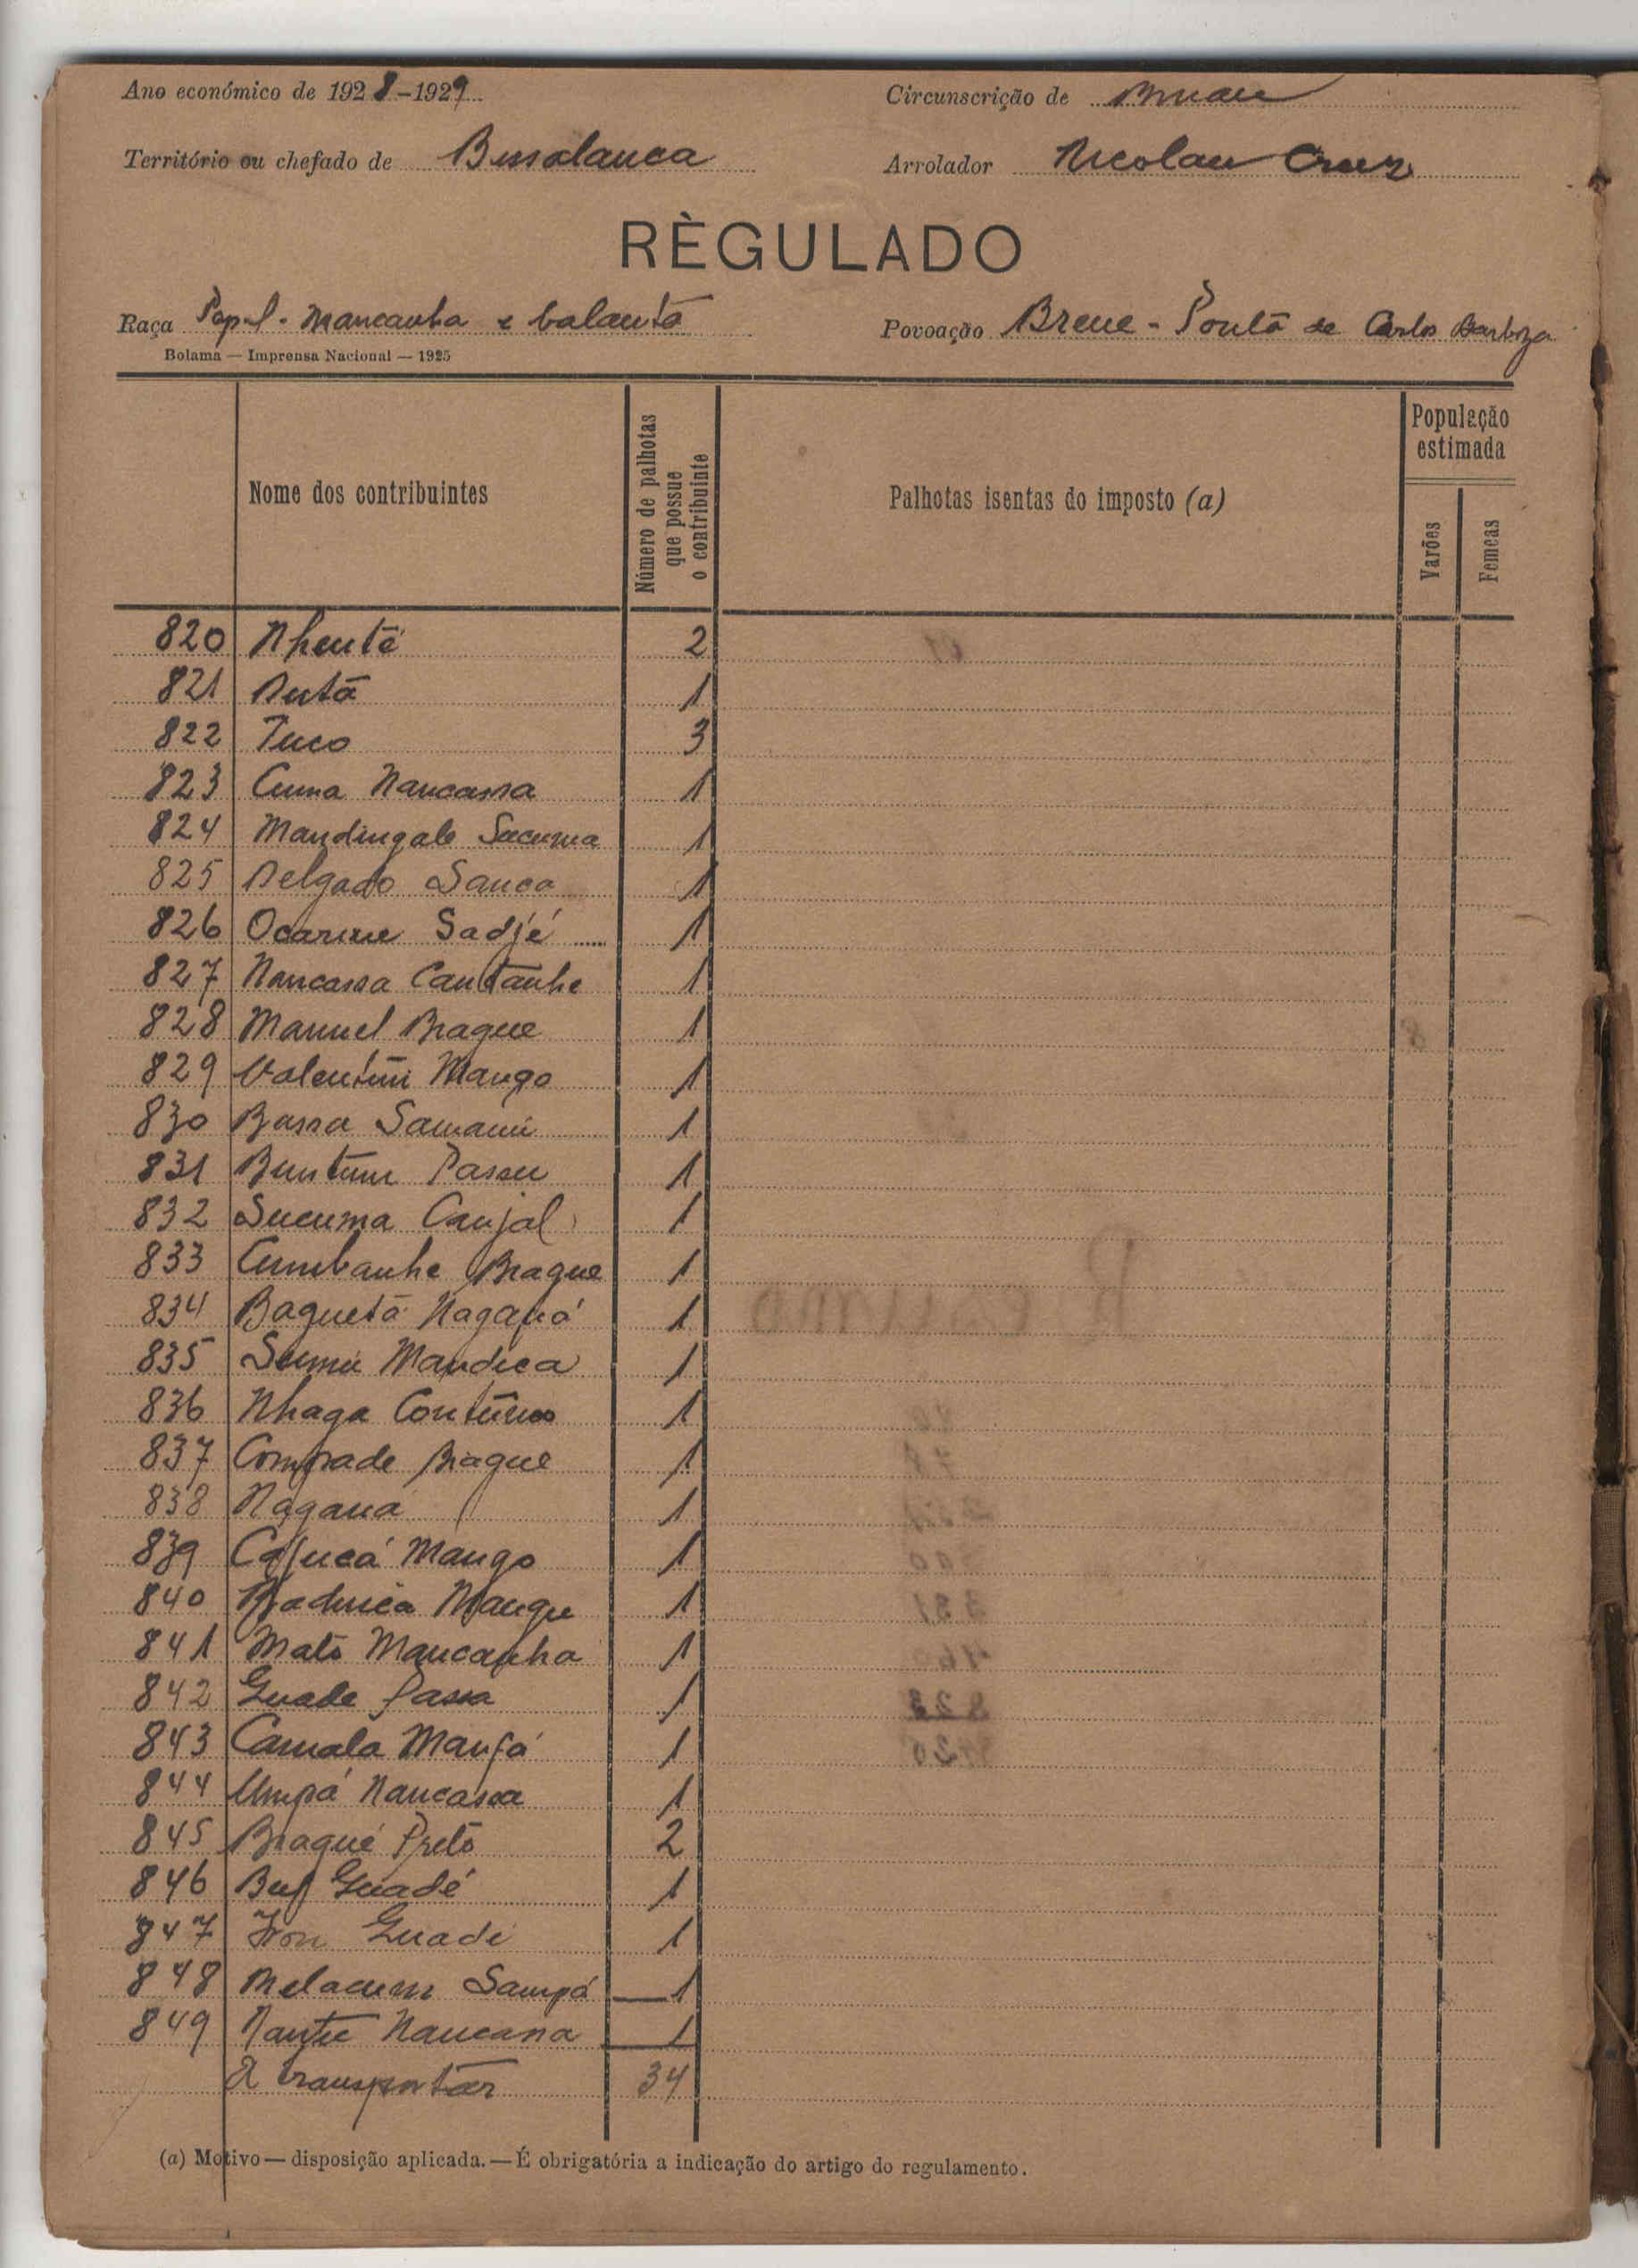 Ano económico de 1928-1929
Circunscrição de Bissau
Território ou chefado de Bissalanca
Arrolador Nicolau Cruz
RÈGULADO
Raça Papel - Mancanha e balanta
Povoação Brene - Ponta de Carlos Barboza
Bolama — Imprensa Nacional — 1925
Nome dos contribuintes
Número de palhotas que possue o contribuinte
Palhotas isentas do imposto (a)
População estimada
Varões
Femeas
820 Nhenté 2
821 1
822 Tuco 3
823 Cuma Nancassa 1
824 Mandingale Sucuma 1
825 Delgado Sanca 1
826 Ocarine Sadjé 1
827 Nancassa Cantanhe 1
828 Manuel Biague 1
829 Valentim Mango 1
830 Bassa 1
831 1
832 Sucuma Canjal 1
833 Cumbanhe Biague 1
834 Baguetá 1
835 Mandica 1
836 Nhaga 1
837 Comprade Biague 1
838 Nagana 1
839 Cajucá Mango 1
840 1
841 Mato Mancanha 1
842 Guade Passa 1
843 Camala 1
844 Umpá Nancassa 1
845 Biagué Preto 2
846 Guadé 1
847 Guadé 1
848 Sampá 1
849 Nancassa 1
A transportar 34
(a) Motivo — disposição aplicada. — É obrigatória a indicação do artigo do regulamento.